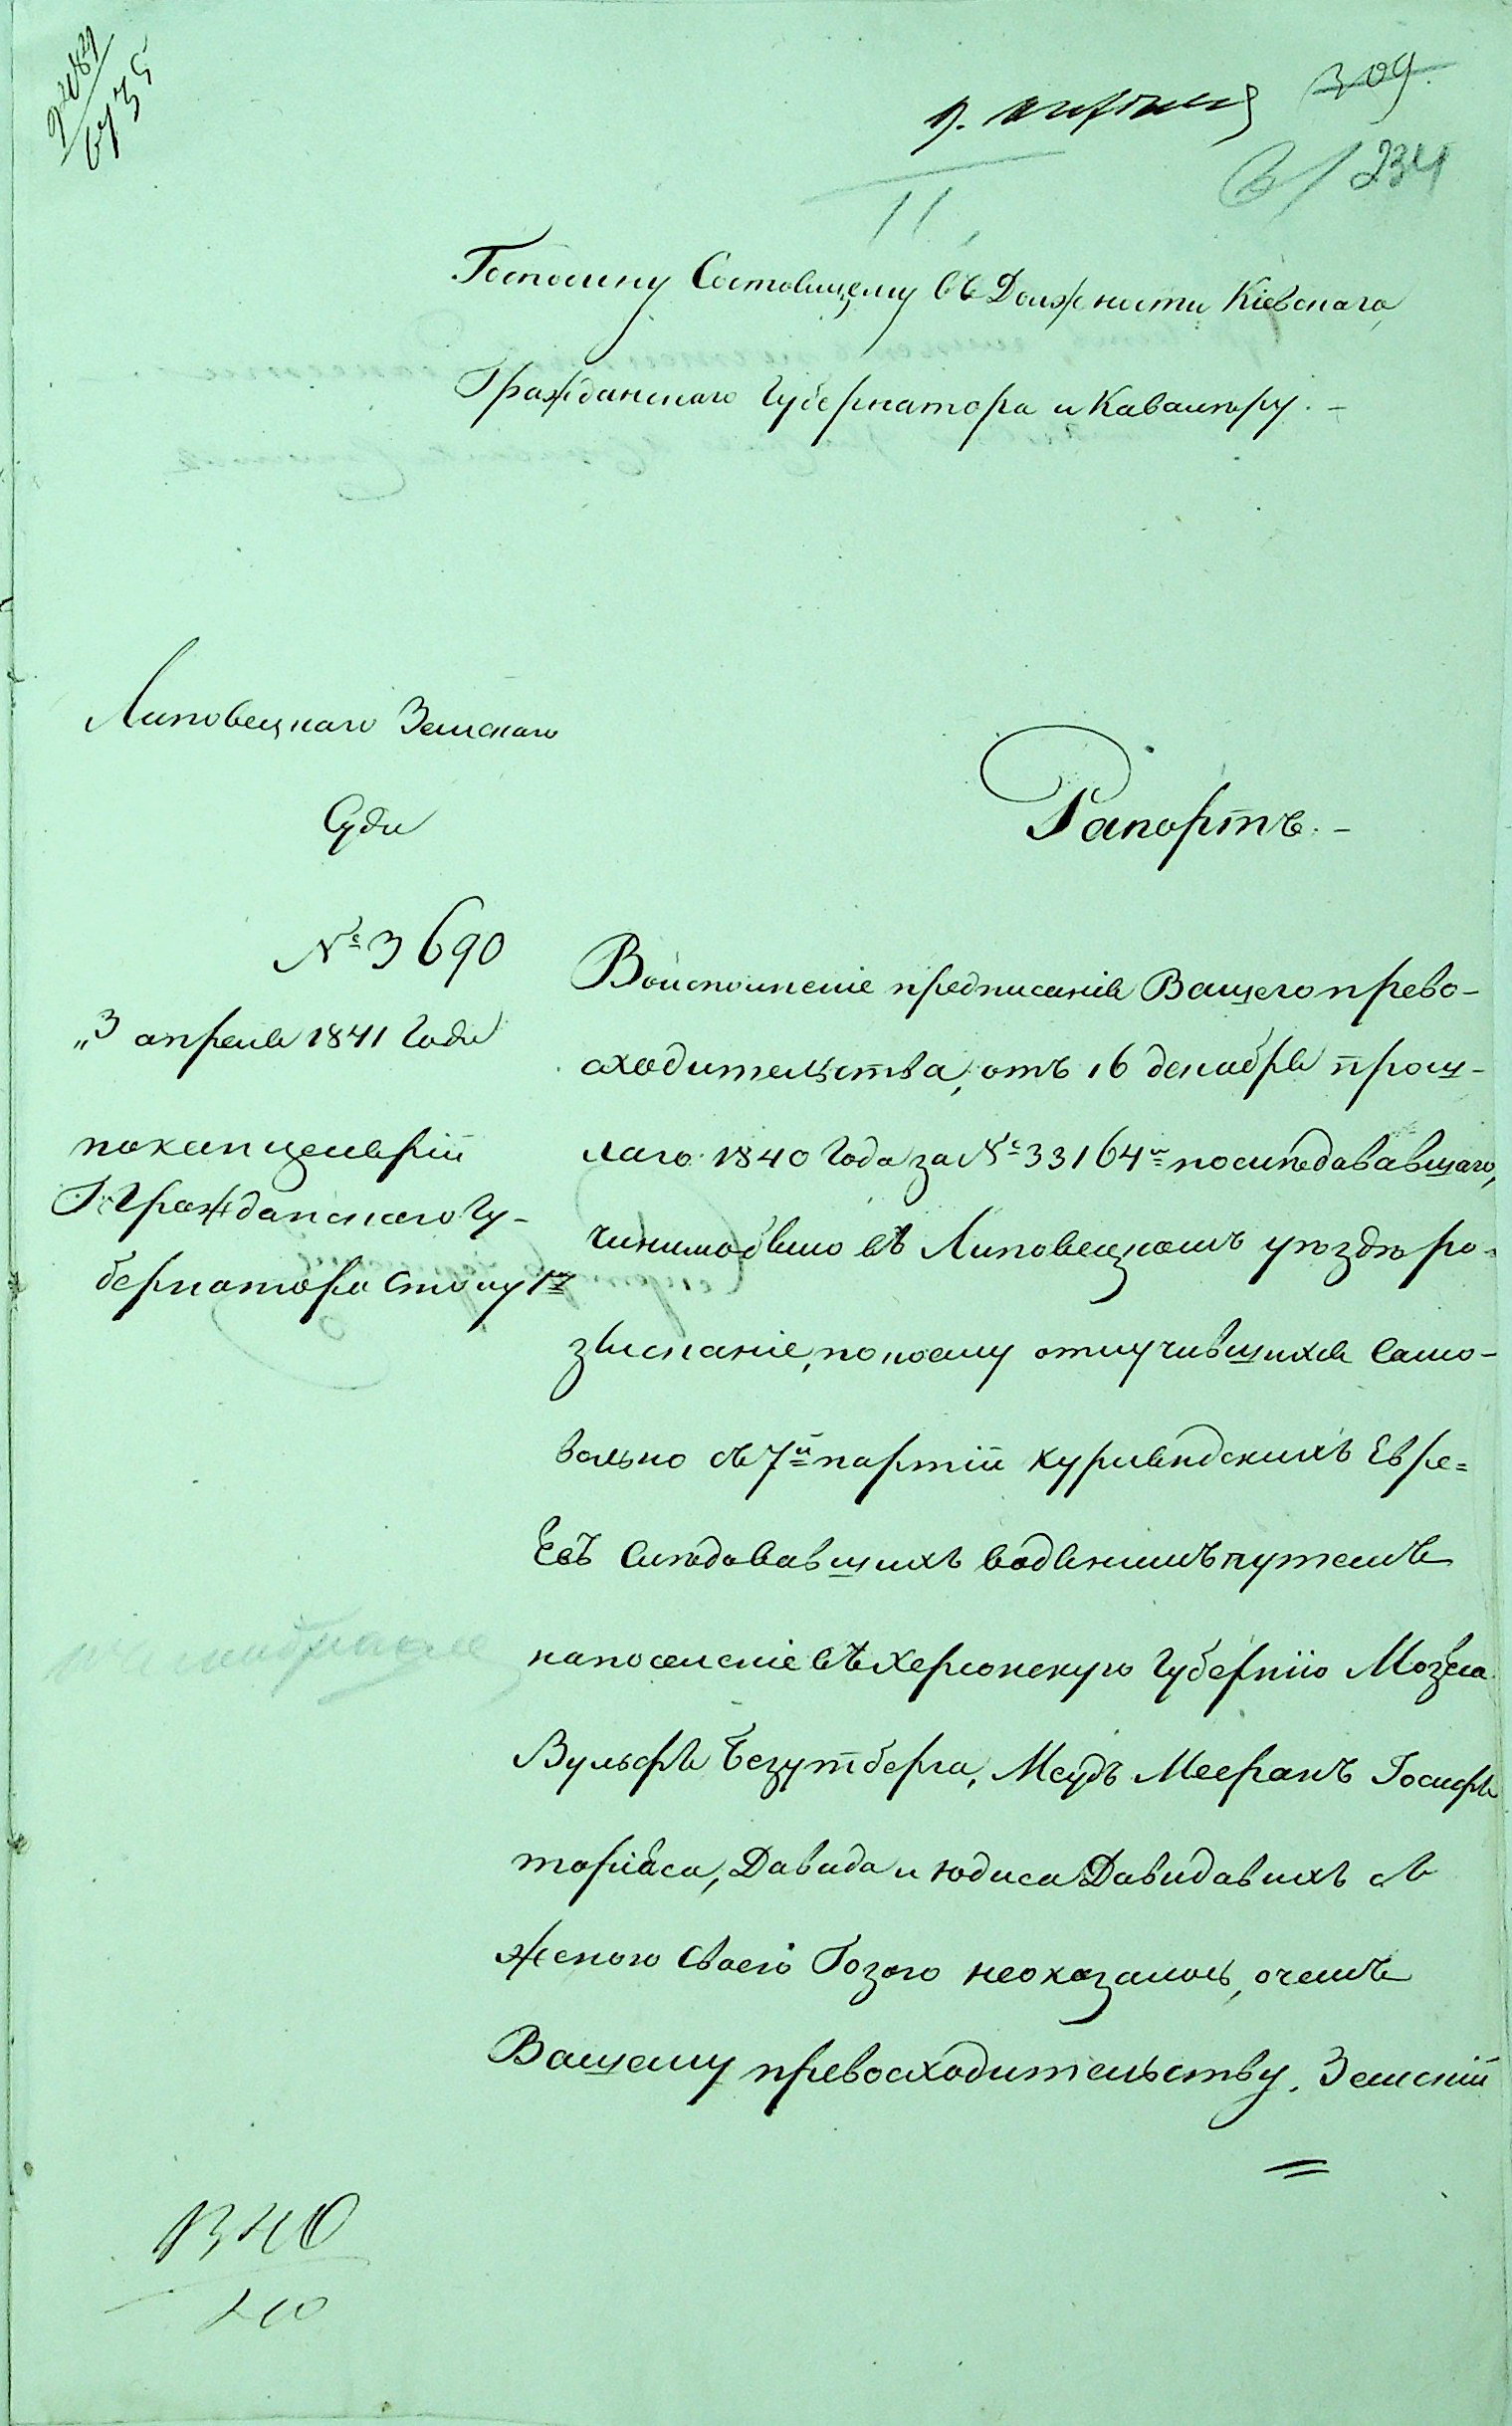 309.
234
Господину Состоящему въ Должности Кіевскаго
Гражданскаго Губернатора и Кавалеру. –
Липовецкаго Земскаго
Суда
№ 3690
„3 апреля 1841 Года
по канцеляріи
Г. Гражданскаго Гу-
бернатора Столу 1го
Рапортъ. –
Воисполненіе предписанія Вашего прево-
сходительства, отъ 16 декабря прош-
лаго 1840 Года за № 33164м последовавшаго,
чинимо было въ Липовецкомъ уѣздѣ ро-
зысканіе, по коему отлучившихся само-
вольно съ 7й партіи курляндскихъ Евре-
евъ следовавшихъ водянымъ путемъ
на поселеніе въ Херсонскую Губернію Мозеса
Вульфа Безутберга, Мееранъ Іосифа
Давида и Юдиса Давидавихъ съ
женою своею Розою неоказалось, о чемъ
Вашему превосходительству. Земскій
1340